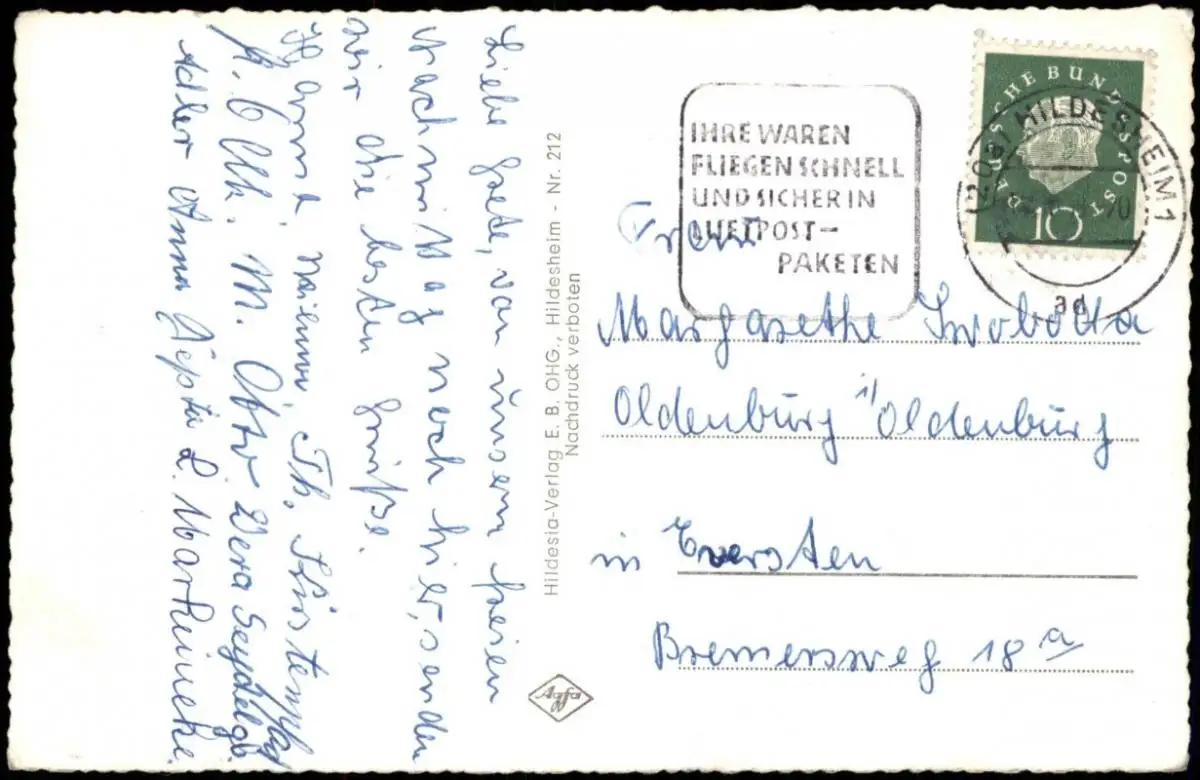 Liebe Grete, von unserm freien
Nachmittag noch hier, senden
wir die besten Grüße.
Hanni Th.
A. M. Otto Vera Seydel gb.
Adler Anna L. Marheineke.
Hildesia-Verlag E. B. OHG., Hildesheim - Nr. 212
Nachdruck verboten
Agfa
IHRE WAREN
FLIEGEN SCHNELL
UND SICHER IN
LUFTPOST-
PAKETEN
DEUTSCHE BUNDESPOST
10
(20a) HILDESHEIM 1
ad
Frau
Margarethe Swobotta
Oldenburg i/ Oldenburg
in Eversten
Bremersweg 18 a